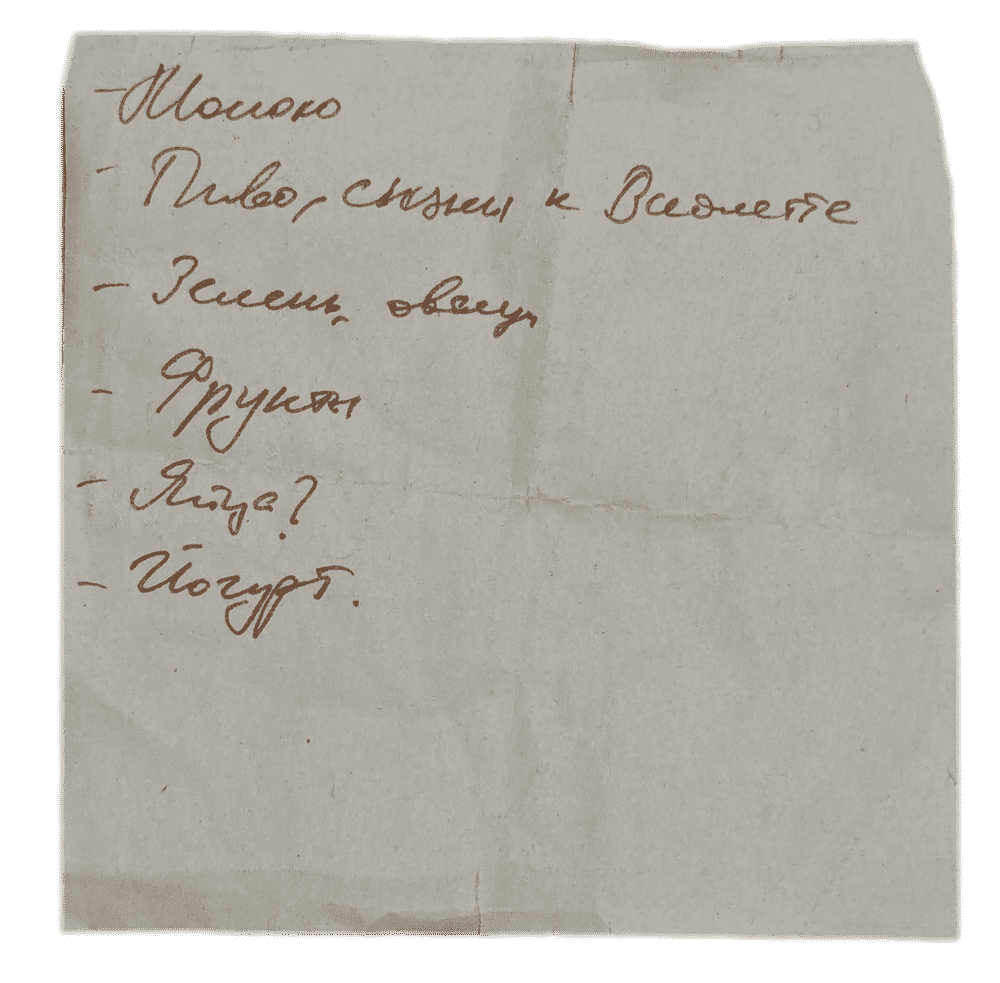 - Молоко
- Пиво, снэки к Виолетте
- Зелень, овощи
- Фрукты
- Яйца?
- Йогурт.